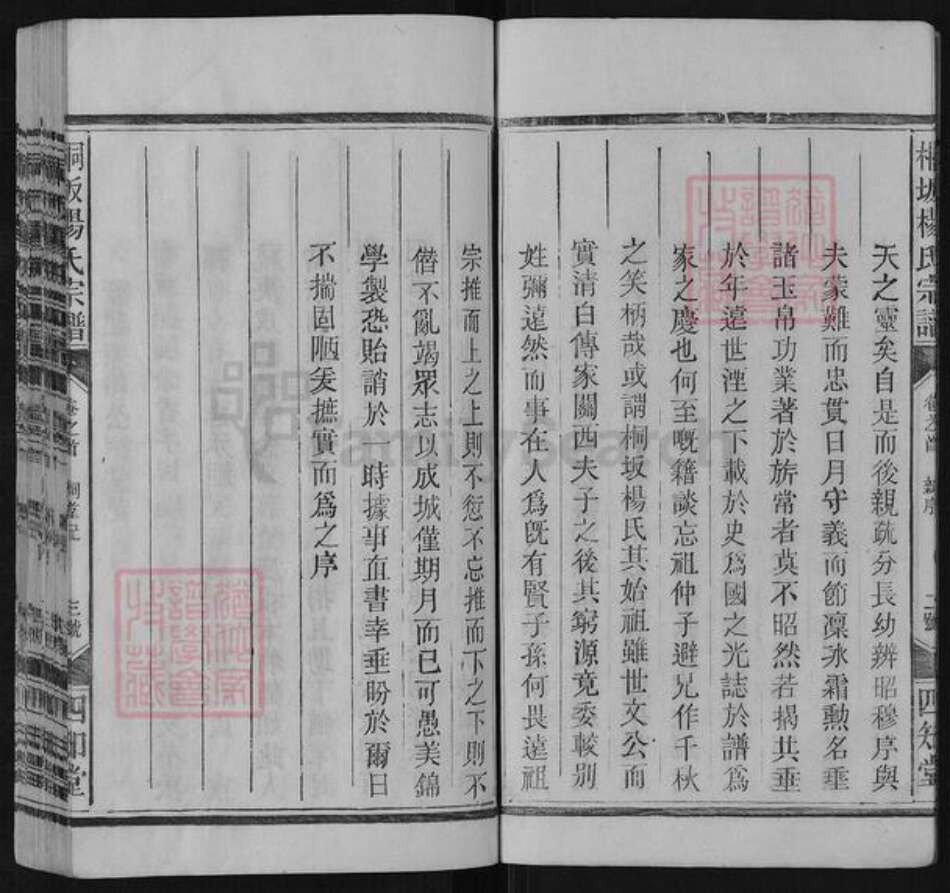 桐坂楊氏宗譜
卷之首
二號
四知堂
天之靈矣自是而後親疏分長幼辨昭穆序與
夫蒙難而忠貫日月守義而節凜冰霜勲名垂
諸玉帛功業著於旂常者莫不昭然若揭共垂
於年遠世湮之下載於史爲國之光誌於譜爲
家之慶也何至嘅籍談忘祖仲子避兄作千秋
之笑柄哉或謂桐坂楊氏其始祖雖世文公而
實清白傳家關西夫子之後其窮源竟委較别
姓彌遠然而事在人爲旣有賢子孫何畏遠祖
宗推而上之上則不愆不忘推而下之下則不
僭不亂竭眾志以成城僅期月而已可愚美錦
學製恐貽誚於一時據事直書幸垂盼於爾日
不揣固陋爰摭實而爲之序
桐坂楊氏宗譜
卷之首
三號
四知堂
FamilySearch